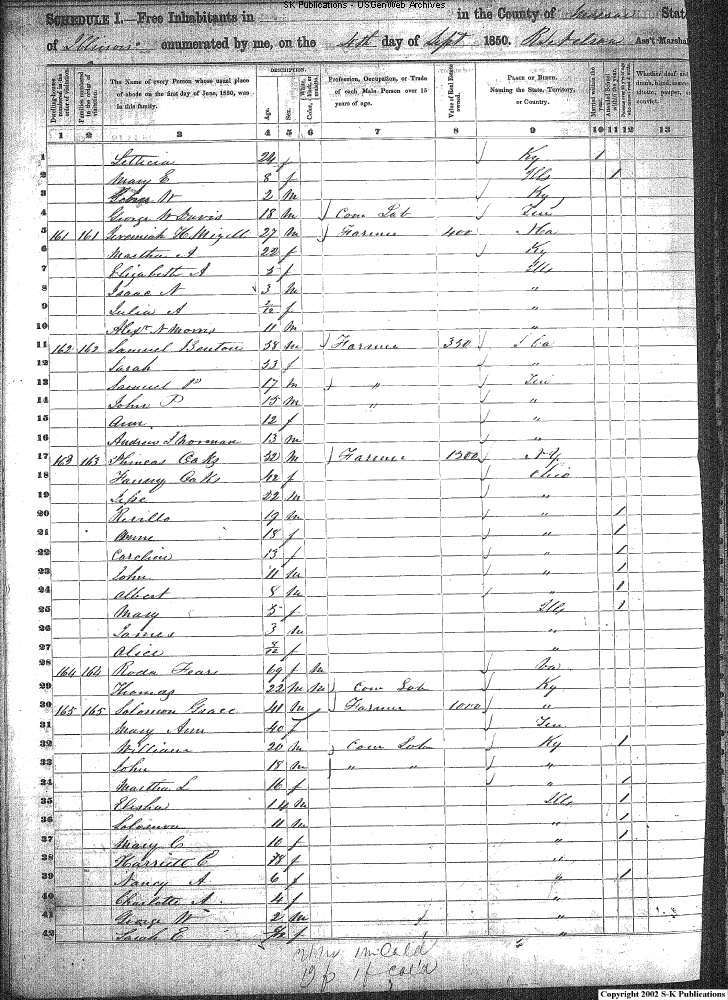 SK Publications - USGenWeb Archives
SCHEDULE I.—Free Inhabitants in in the County of State
of Illinois enumerated by me, on the 4th day of Sept 1850. Ass't Marshal
Dwelling-houses numbered in the order of visitation.
Families numbered in the order of visitation.
The Name of every Person whose usual place of abode on the first day of June, 1850, was in this family.
DESCRIPTION.
Age.
Sex.
Profession, Occupation, or Trade of each Male Person over 15 years of age.
Value of Real Estate owned.
PLACE OF BIRTH. Naming the State, Territory, or Country.
1 2 3 4 5 6 7 8 9 10 11 12 13
1 Letticia 24 f Ky 1
2 Mary E 8 f Ills 1
3 George W 2 m Ky
4 George W Davis 18 m Com Lab Ten
5 161 161 Jeremiah H Mizell 27 m Farmer 400
6 Martha A 22 f Ky
7 Elizabeth A 5 f Ills
8 Isaac N 3 m "
9 Julia A f "
10 Alexr N Morris 11 m "
11 162 162 Samuel Benton 58 m Farmer 350
12 Sarah 53 f "
13 Samuel P 17 m " Ten
14 John P 15 m " "
15 Ann 12 f "
16 Andrew J Norman 13 m "
17 163 163 Phineas Oaks 52 m Farmer 1300 N.Y.
18 Fanny Oaks 42 f Ohio
19 22 m "
20 Rosillo 19 m " 1
21 Anne 18 f " 1
22 Caroline 13 f " 1
23 John 11 m " 1
24 Albert 8 m " 1
25 Mary 5 f Ills 1
26 James 3 m "
27 Alice f "
28 164 164 Roda Fears 69 f m Va
29 Thomas 22 m m Com Lab Ky
30 165 165 Solomon Grace 41 m Farmer 1000 "
31 Mary Ann 40 f Ten
32 William 20 m Com Lab Ky 1
33 John 18 m " " "
34 Martha L 16 f " 1
35 Elisha 14 m Ills 1
36 Solomon 11 m " 1
37 Mary C 10 f " 1
38 Harriett E 8 f "
39 Nancy A 6 f " 1
40 Charlotte A 4 f "
41 George W 2 m "
42 Sarah E f "
Copyright 2002 S-K Publications